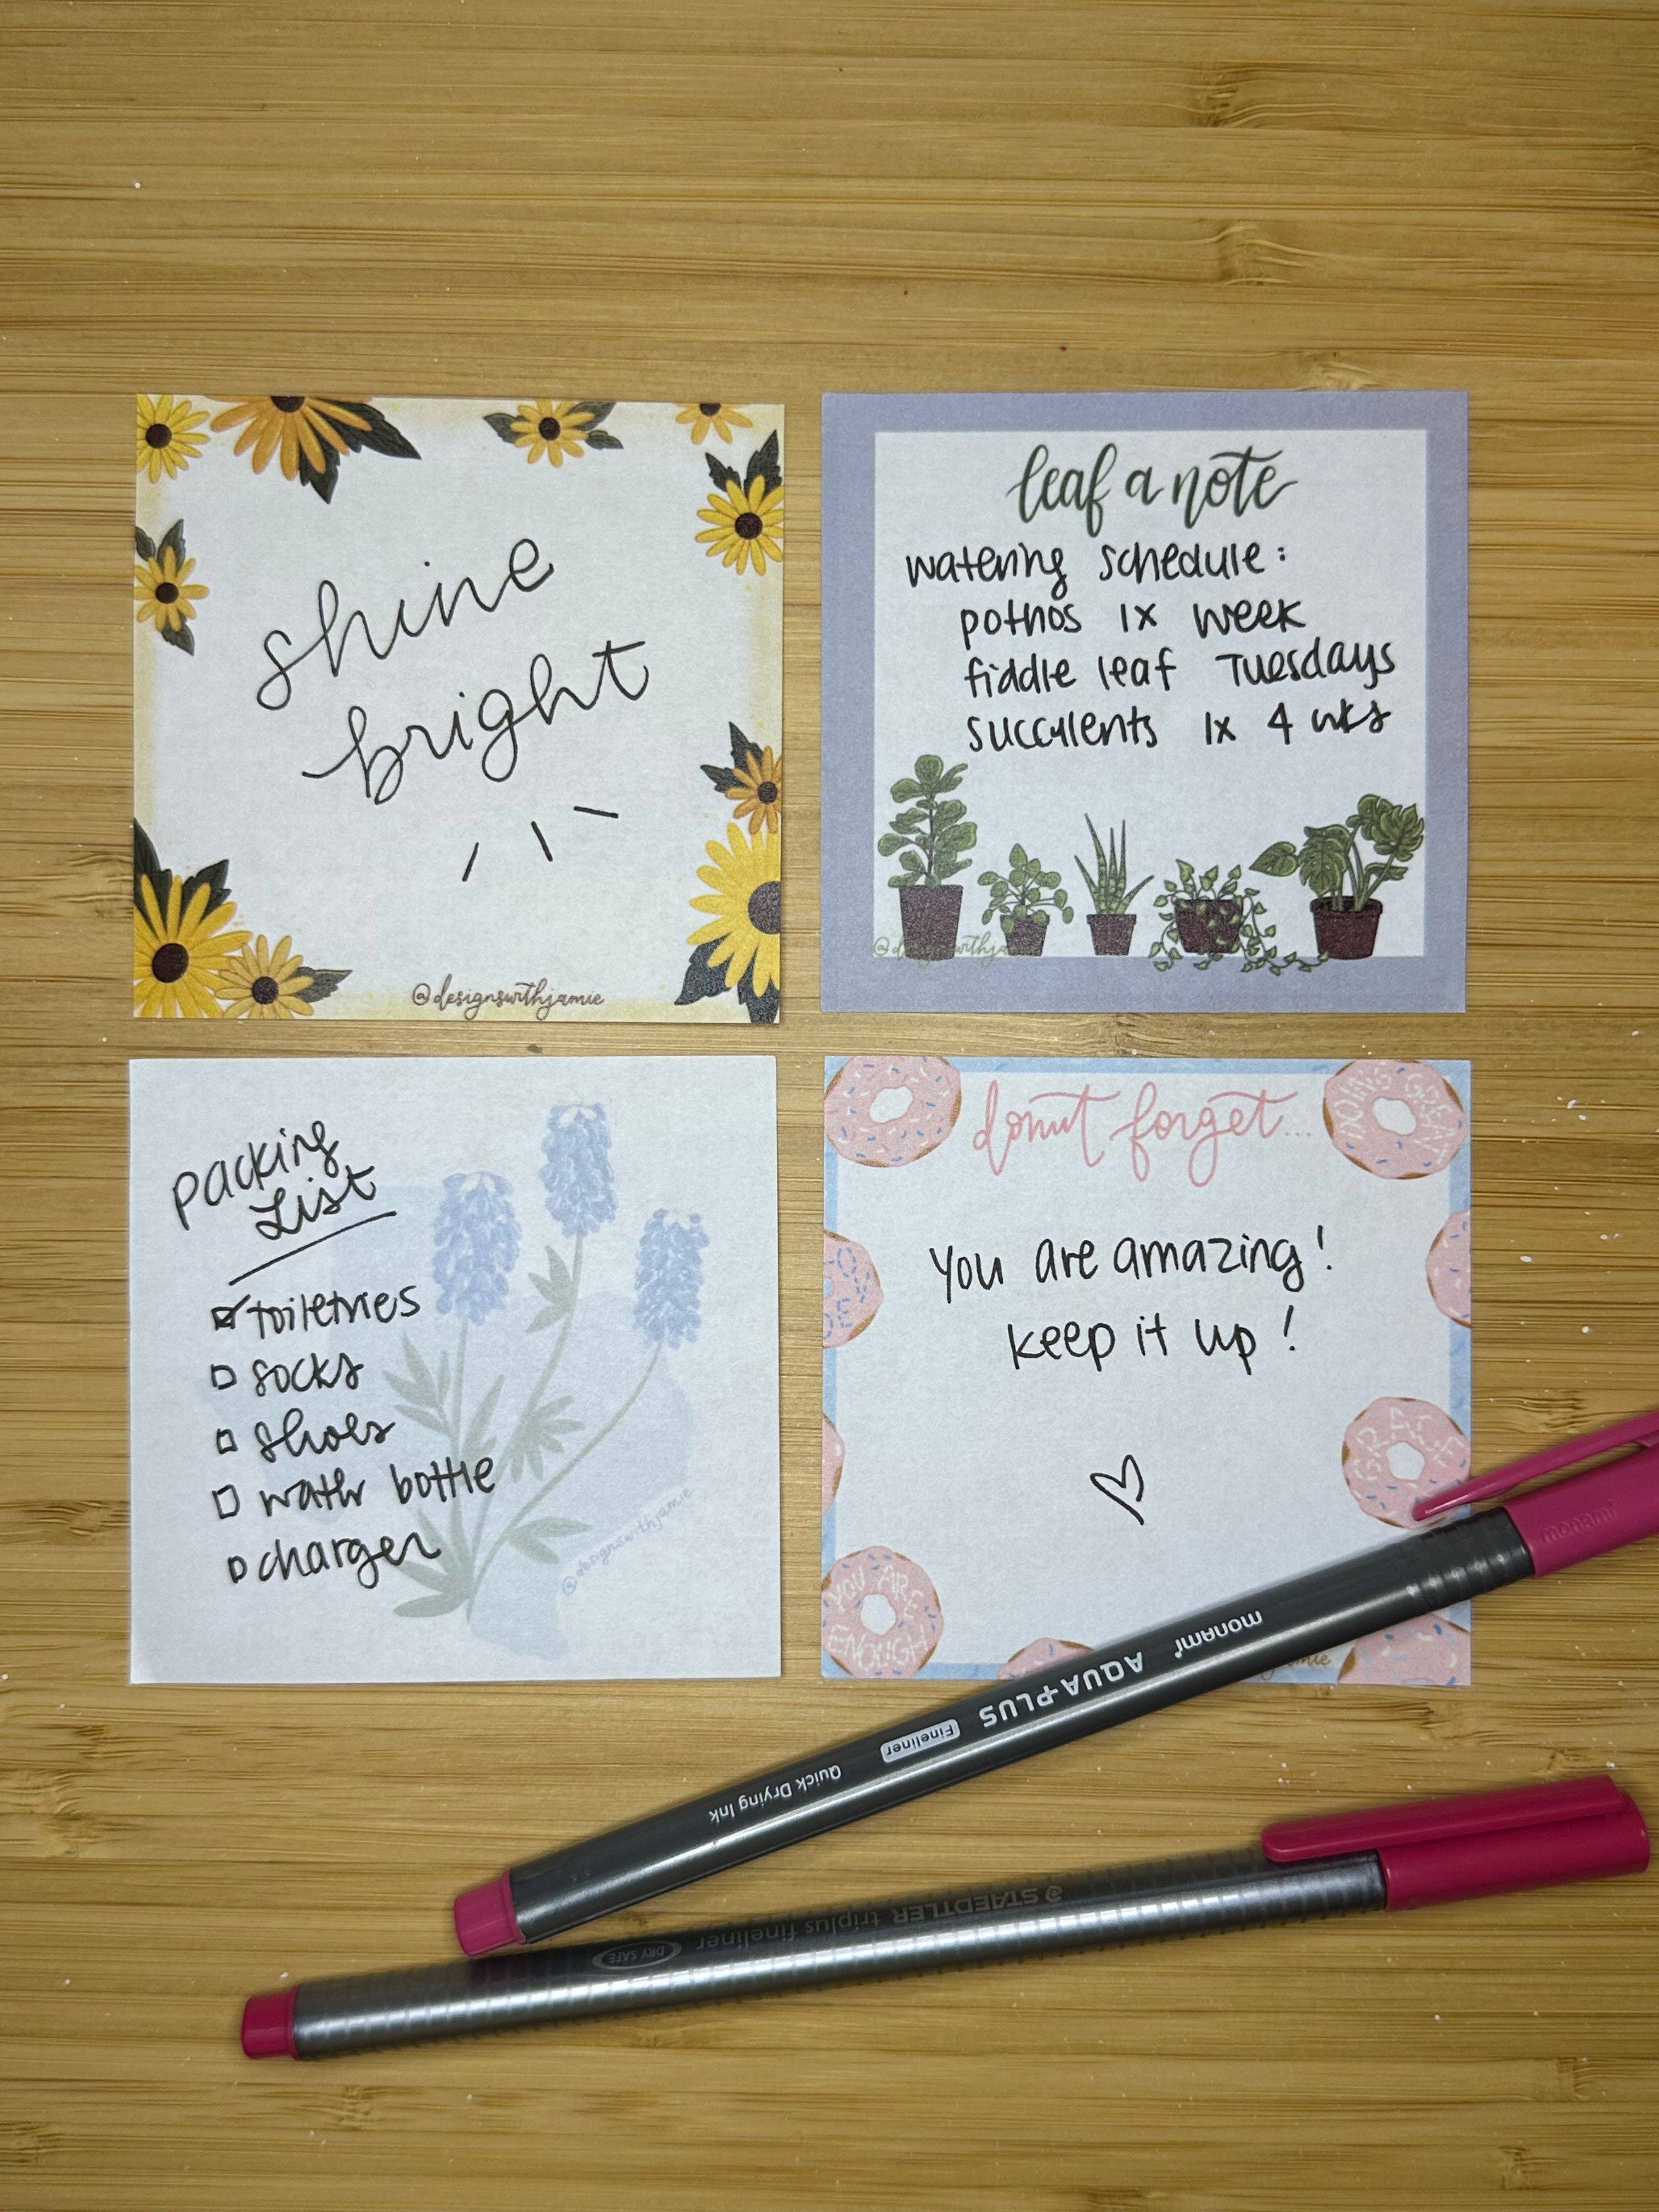 shine
bright
@designswithjamie
leaf a note
watering schedule:
pothos 1x week
fiddle leaf Tuesdays
succulents 1x 4 wks
@designswithja
packing
List
toiletries
socks
shoes
water bottle
charger
@designswithjamie
donut forget...
DOING GREAT
You are amazing!
keep it up!
GRACE
YOU ARE
ENOUGH
monami
monami
AQUA-PLUS
Fineliner
Quick Drying Ink
STAEDTLER triplus fineliner
DRY SAFE